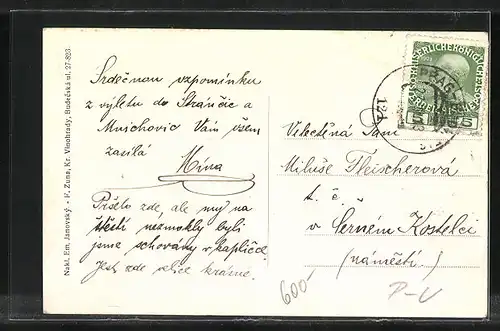 Nakl. Em. Janovský. - F. Zuna, Kr. Vinohrady, Budečská ul. 27-823.
Srdečnou vzpomínku
z výletu do Stránčic a
Mnichovic Vám všem
zasílá
Mína
Pršelo zde, ale my na
štěstí nezmokly byli
jsme schovány v kapličce.
Jest zde velice krásně.
KAISERLICHE KÖNIGL
1908
5 5
PRAG
Velectěná Paní
Miluše Fleischerová
t. č.
v Černém Kostelci
(náměstí)
600
P-V